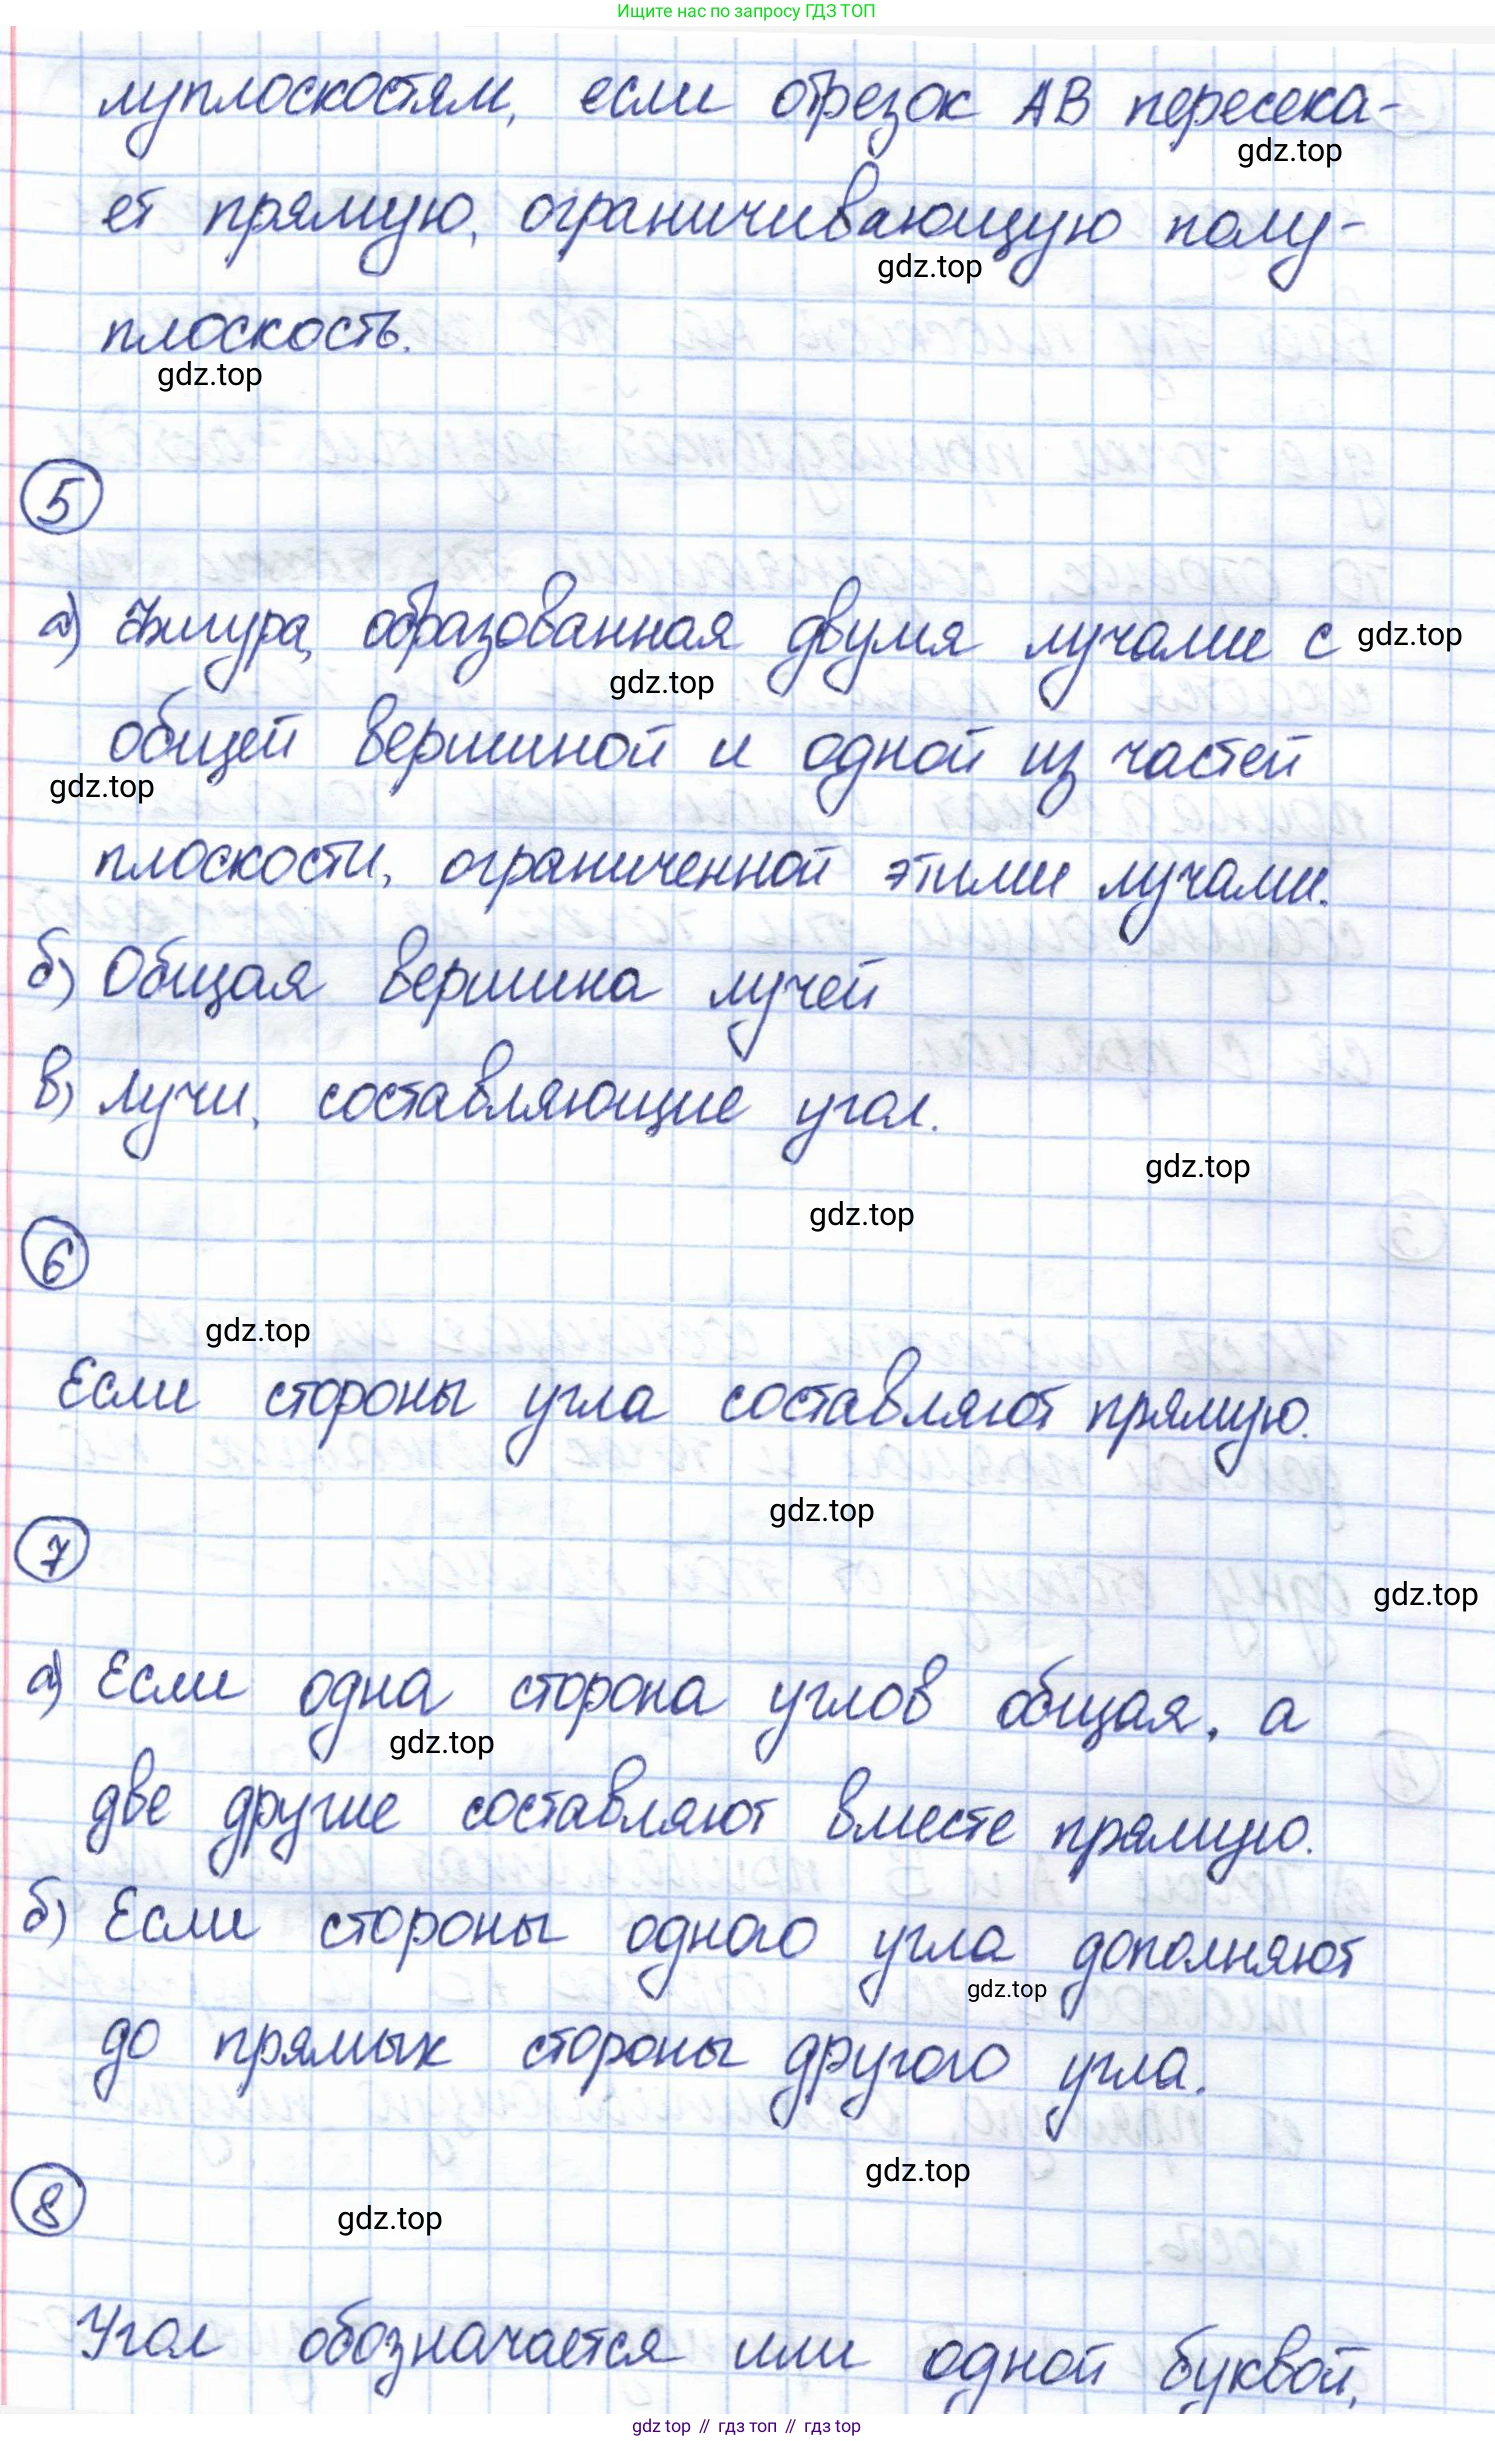 Ищите нас по запросу ГДЗ ТОП
луплоскостям, если отрезок АВ пересека-
gdz.top
ет прямую, ограничивающую полу-
gdz.top
плоскость.
gdz.top
5
а) Фигура, образованная двумя лучами с
gdz.top
gdz.top
общей вершиной и одной из частей
gdz.top
плоскости, ограниченной этими лучами.
б) Общая вершина лучей
в) Лучи, составляющие угол.
gdz.top
gdz.top
6
gdz.top
Если стороны угла составляют прямую.
gdz.top
7
gdz.top
а) Если одна сторона углов общая, а
gdz.top
две другие составляют вместе прямую.
б) Если стороны одного угла дополняют
gdz.top
до прямых стороны другого угла.
gdz.top
8
gdz.top
Угол обозначается или одной буквой,
gdz top // гдз топ // гдз top